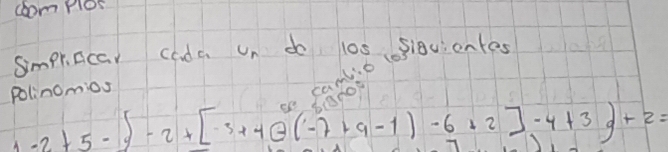 Simplificar cada un de los siguientes
Polinomios
se cambio los signos
-2+5-}-2+[-3+4-(-7+9-1)-6+2]-4+3}+2=